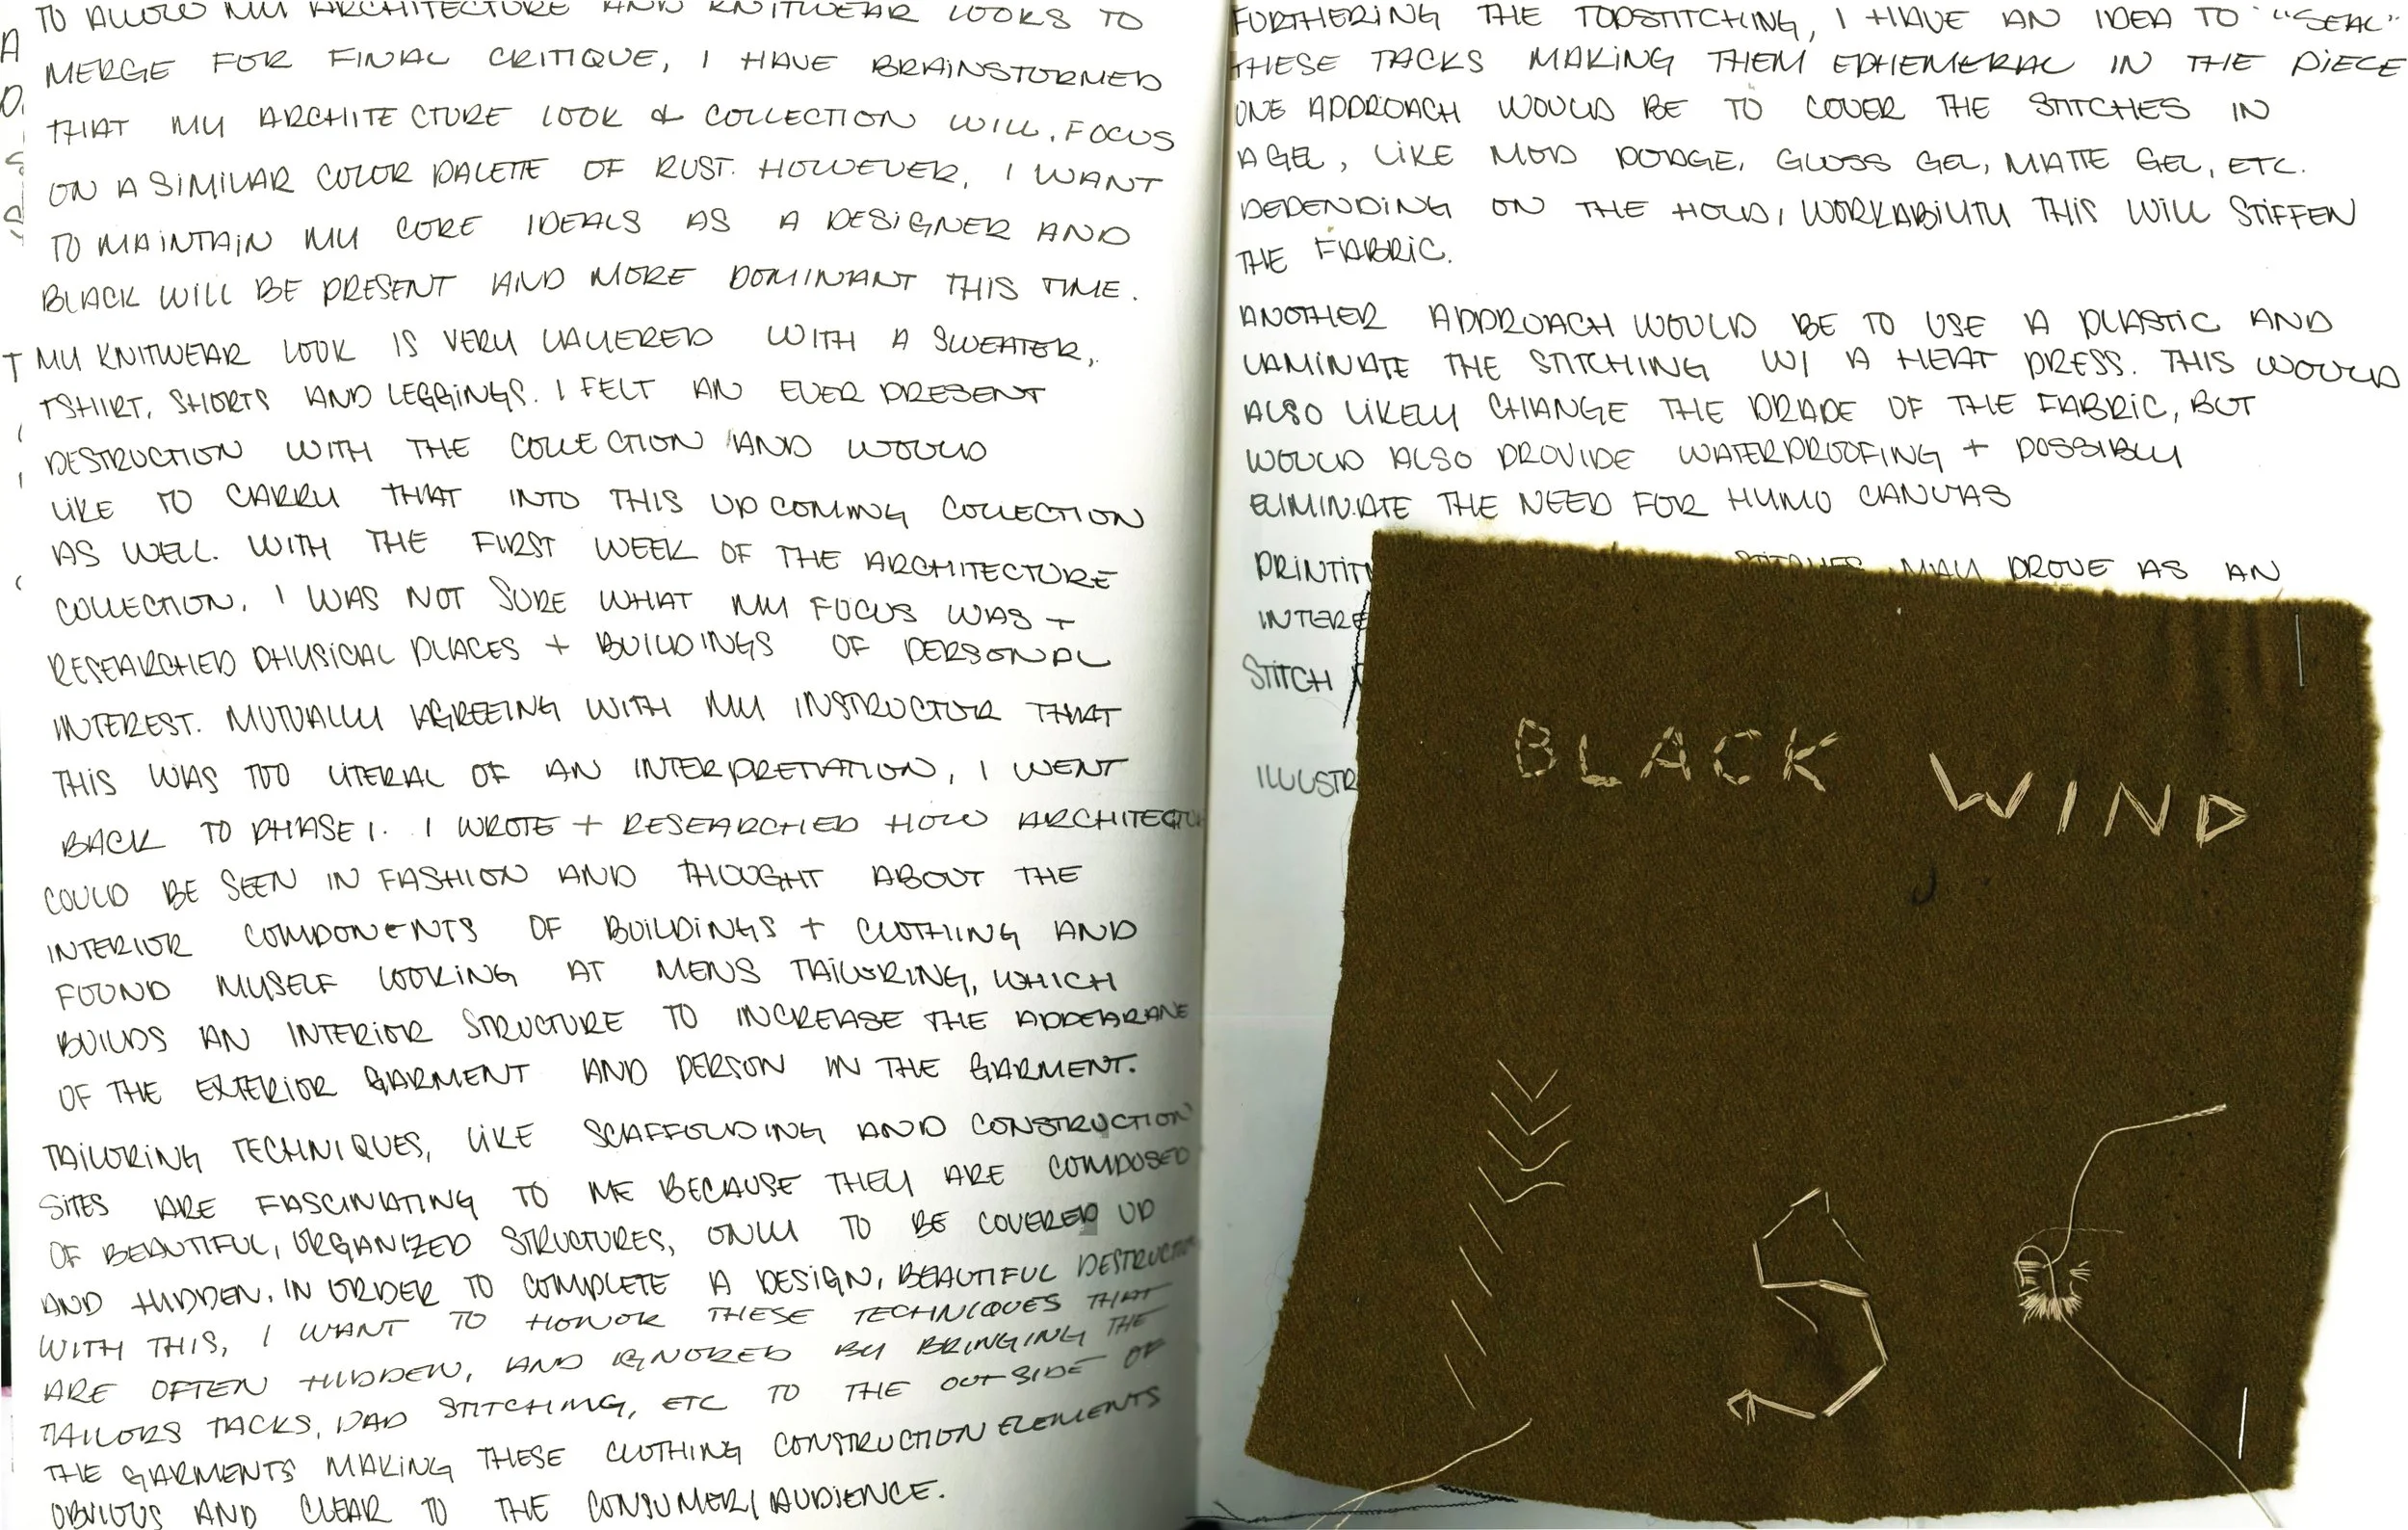 TO ALLOW MY ARCHITECTURE AND KNITWEAR LOOKS TO
MERGE FOR FINAL CRITIQUE, I HAVE BRAINSTORMED
THAT MY ARCHITECTURE LOOK & COLLECTION WILL FOCUS
ON A SIMILAR COLOR PALETTE OF RUST. HOWEVER, I WANT
TO MAINTAIN MY CORE IDEALS AS A DESIGNER AND
BLACK WILL BE PRESENT AND MORE DOMINANT THIS TIME.
MY KNITWEAR LOOK IS VERY LAYERED WITH A SWEATER,
TSHIRT, SHORTS AND LEGGINGS. I FELT AN EVER PRESENT
DESTRUCTION WITH THE COLLECTION AND WOULD
LIKE TO CARRY THAT INTO THIS UPCOMING COLLECTION
AS WELL. WITH THE FIRST WEEK OF THE ARCHITECTURE
COLLECTION, I WAS NOT SURE WHAT MY FOCUS WAS +
RESEARCHED PHYSICAL PLACES + BUILDINGS OF PERSONAL
INTEREST. MUTUALLY AGREEING WITH MY INSTRUCTOR THAT
THIS WAS TOO LITERAL OF AN INTERPRETATION, I WENT
BACK TO PHASE 1. I WROTE + RESEARCHED HOW ARCHITECTU
COULD BE SEEN IN FASHION AND THOUGHT ABOUT THE
INTERIOR COMPONENTS OF BUILDINGS + CLOTHING AND
FOUND MYSELF LOOKING AT MENS TAILORING, WHICH
BUILDS AN INTERIOR STRUCTURE TO INCREASE THE APPEARANE
OF THE EXTERIOR GARMENT AND PERSON IN THE GARMENT.
TAILORING TECHNIQUES, LIKE SCAFFOLDING AND CONSTRUCTION
SITES ARE FASCINATING TO ME BECAUSE THEY ARE COMPOSED
OF BEAUTIFUL, ORGANIZED STRUCTURES, ONLY TO BE COVERED UP
AND HIDDEN, IN ORDER TO COMPLETE A DESIGN, BEAUTIFUL DESTRUCTION
WITH THIS, I WANT TO HONOR THESE TECHNIQUES THAT
ARE OFTEN HIDDEN, AND IGNORED BY BRINGING THE
TAILORS TACKS, PAD STITCHING, ETC TO THE OUTSIDE OF
THE GARMENTS MAKING THESE CLOTHING CONSTRUCTION ELEMENTS
OBVIOUS AND CLEAR TO THE CONSUMER/AUDIENCE.
FURTHERING THE TOPSTITCHING, I HAVE AN IDEA TO "SEAL"
THESE TACKS MAKING THEM EPHEMERAL IN THE PIECE
ONE APPROACH WOULD BE TO COVER THE STITCHES IN
A GEL, LIKE MOD PODGE, GLOSS GEL, MATTE GEL, ETC.
DEPENDING ON THE HOLD, WORKABILITY THIS WILL STIFFEN
THE FABRIC.
ANOTHER APPROACH WOULD BE TO USE A PLASTIC AND
LAMINATE THE STITCHING W/ A HEAT PRESS. THIS WOULD
ALSO LIKELY CHANGE THE DRAPE OF THE FABRIC, BUT
WOULD ALSO PROVIDE WATERPROOFING + POSSIBLY
ELIMINATE THE NEED FOR HYMO CANVAS
STITCHES MAY PROVE AS AN
INTERE
STITCH
ILLUSTR
BLACK WIND
S